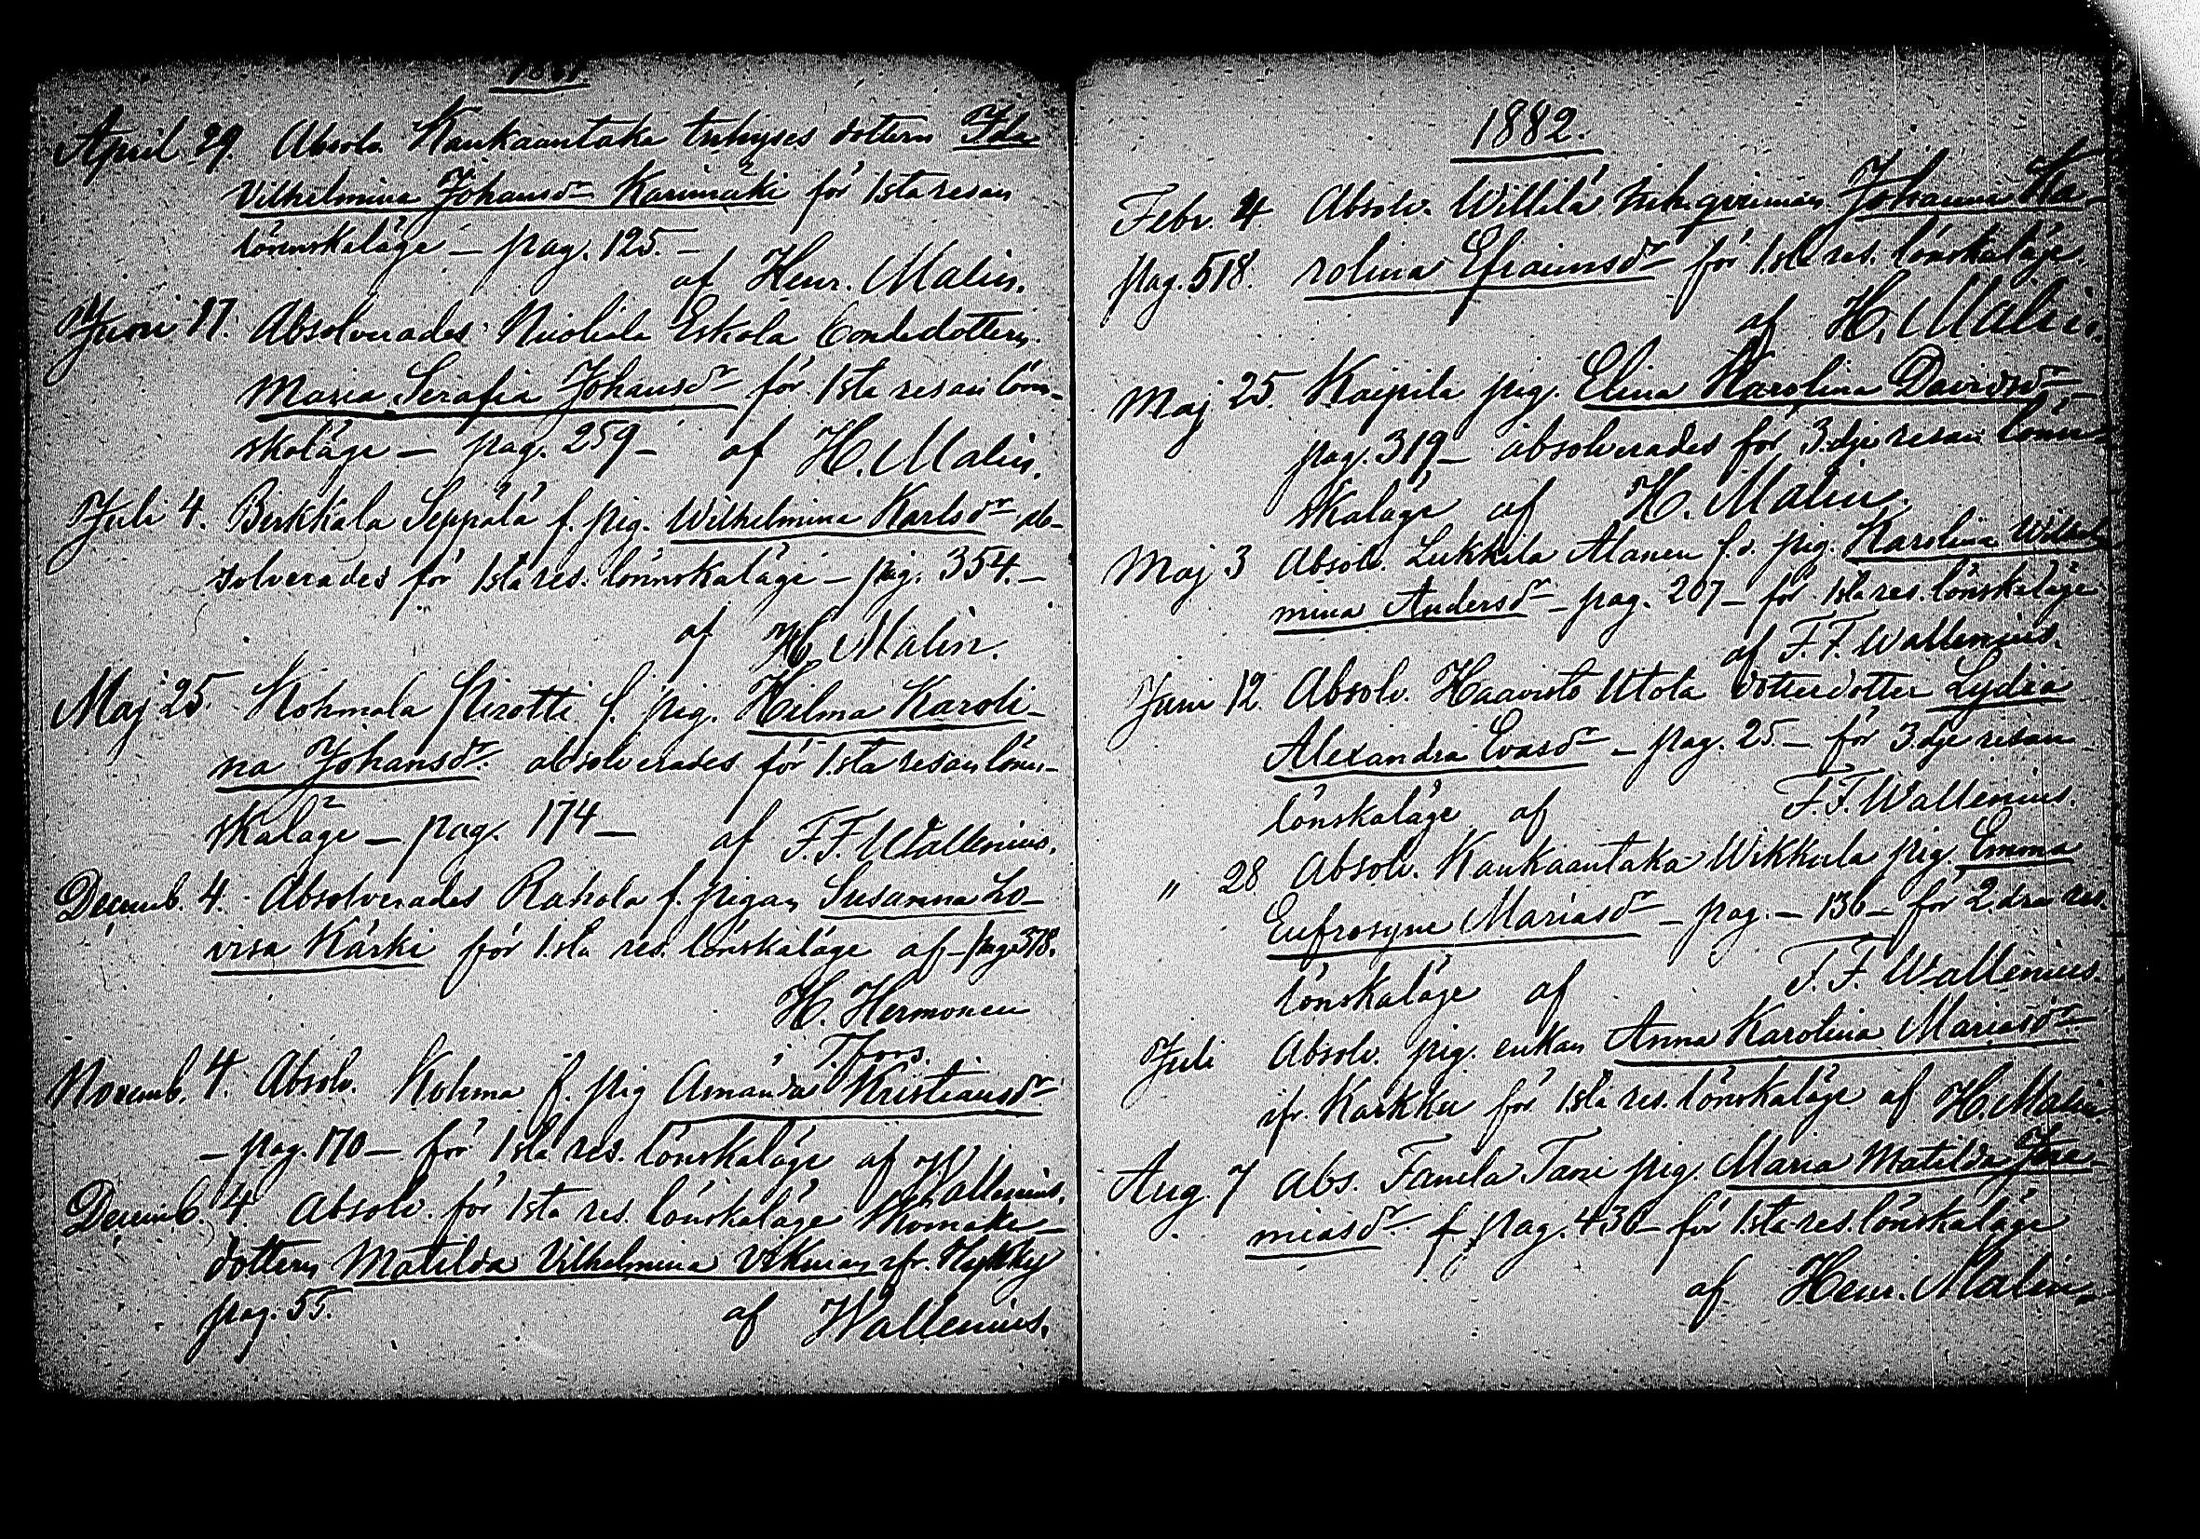 1881.
April 29. Absolv. Kaukaantaka inhyses dottern Ida
Vilhelmina Johansdr Karimäki för 1sta resan
lönnskaläge – pag. 125. –
af Henr. Malin.
Juni 17. Absolverades Nuoliala Eskola bondedottern
Maria Serafia Johansdr för 1sta resan löns-
skaläge – pag. 259 – af H. Malin.
Juli 4. Birkkala Seppälä f. pig. Wilhelmina Karlsdr ab-
solverades för 1sta res. lönnskaläge – pag. 354. –
af H. Malin.
Maj 25 Kohmala Pirotti f. pig. Hilma Karoli-
na Johansdr absolverades för 1sta resan löns-
skaläge – pag. 174 – af F. F. Wallenius.
Decemb. 4. Absolverades Rahola f. pigan Susanna Lo-
visa Kärki för 1.sta res. lönskaläge af – pag. 378.
H. Hermonen
Novemb. 4. Absolv. Kohma f. pig Amanda Kristiansdr
– pag. 170 – för 1sta res. lönskaläge af Wallenius.
Decemb. 4 Absolv. för 1sta res. lönskaläge
dottern Matilda Vilhelmina
pag. 55. af Wallenius.
1882.
Febr. 4 Absolv. Willilä inh. qvinnan Johanna Ka-
pag. 518. rolina Efraimsdr för 1.sta res. lönskaläge
af H. Malin.
Maj 25. Kaipila pig. Elina Karolina Davidsdr
pag. 319 – absolverades för 3.dje resan löns-
skaläge af H. Malin.
Maj 3 Absolv. Lukkila Alanen f.d. pig. Karolina Wilhel-
mina Andersdr – pag. 207 – för 1sta res. lönskaläge
af F. F. Wallenius.
Juni 12. Absolv. Haavisto Utola dotterdotter Lydia
Alexandra Evasdr – pag. 25. – för 3.dje resan
lönskaläge af F. F. Wallenius.
" 28 Absolv. Kaukaantaka Wikkula pig. Emma
Eufrosyne Mariasdr – pag. – 136 – för 2.dra res.
lönskaläge af F. F. Wallenius.
Juli Absolv. pig. enkan Anna Karolina Mariasdr
ifr. Karkku för 1.sta res. lönskaläge af H. Malin
Aug. 7 Abs. Tanila Tani pig. Maria Matilda Jere-
miasdr f. pag. 436 – för 1.sta res. lönskaläge
af Henr. Malin.